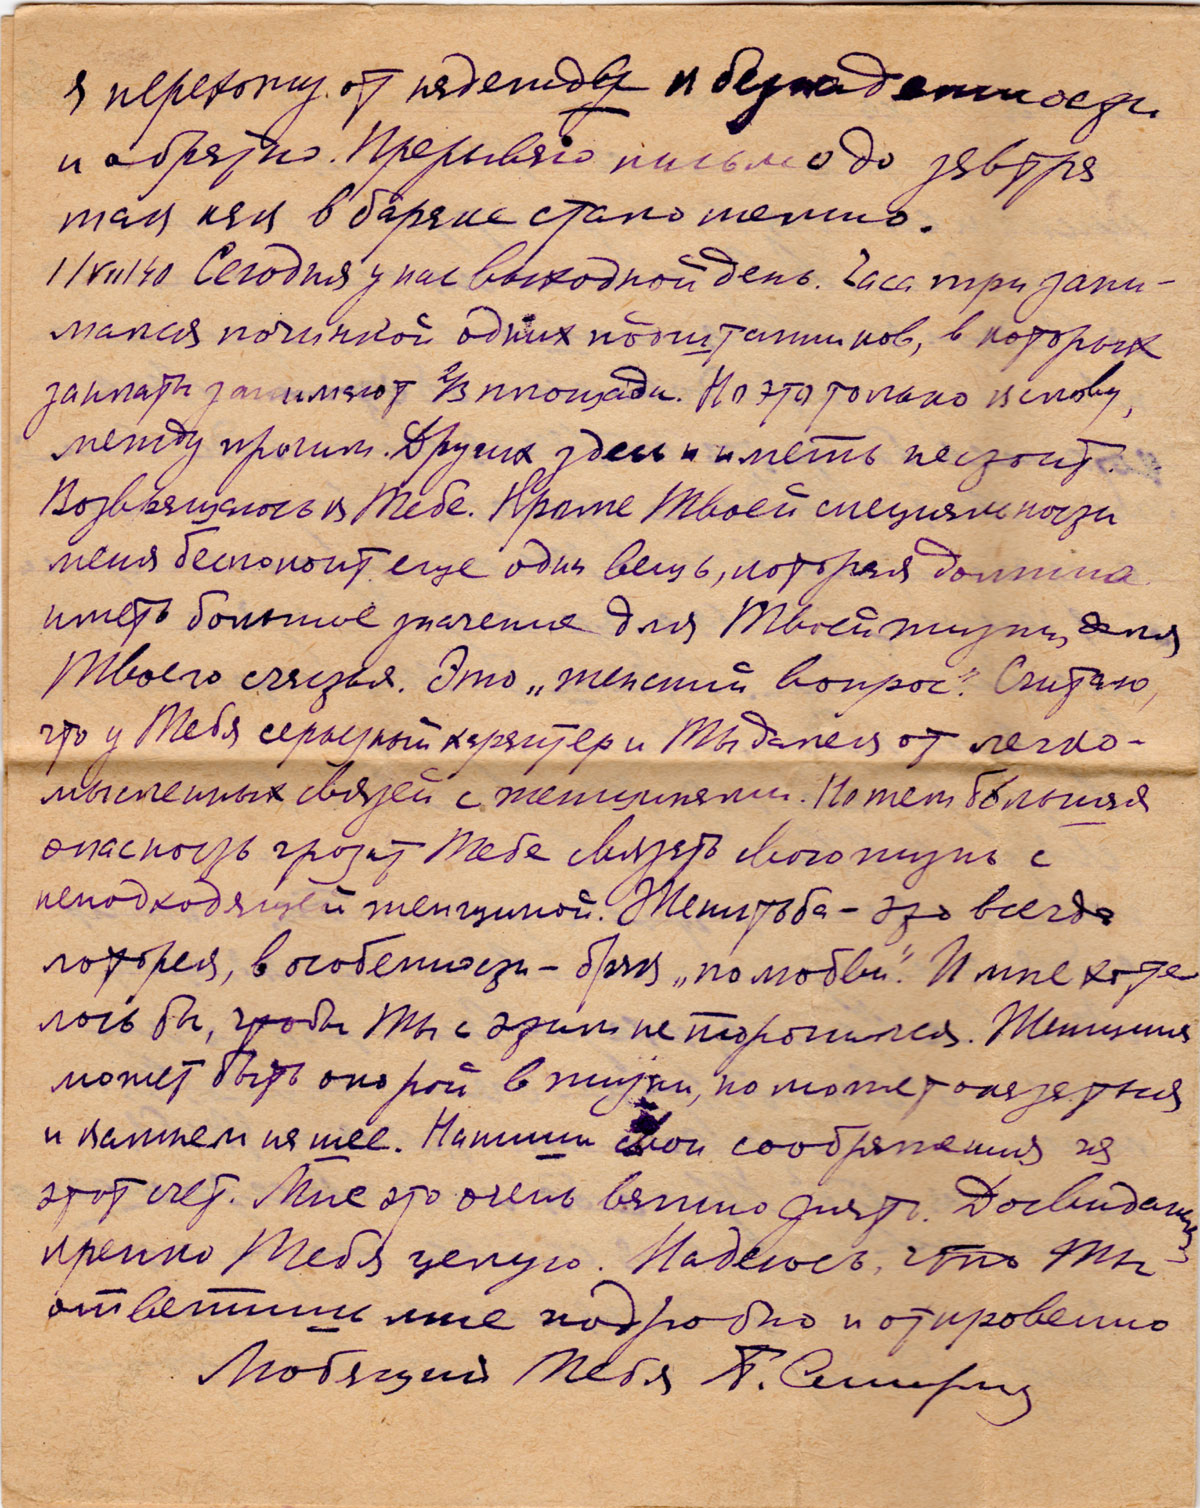 я перехожу от надежды к безнадежности
и обратно. Прерываю письмо до завтра
так как в бараке стало темно.
1/VIII/40 Сегодня у нас выходной день. Часа три зани-
мался починкой одних подштанников, в которых
заплаты занимают 2/3 площади. Но это только к слову,
между прочим. Других здесь и иметь не стоит.
Возвращаюсь к Тебе. Кроме Твоей специальности
меня беспокоит еще одна вещь, которая должна
иметь большое значение для Твоей жизни, для
Твоего счастья. Это „женский вопрос". Считаю,
что у Тебя серьезный характер и Ты далек от легко-
мысленных связей с женщинами. Но тем большая
опасность грозит Тебе связать свою жизнь с
неподходящей женщиной. Женитьба – это всегда
лотерея, в особенности – брак „по любви". И мне хоте
лось бы, чтобы Ты с этим не торопился. Женщина
может быть опорой в жизни, но может оказаться
и камнем на шее. Напиши свои соображения на
этот счет. Мне это очень важно знать. Досвидания,
крепко Тебя целую. Надеюсь, что Ты
ответишь мне подробно и откровенно
Любящий Тебя